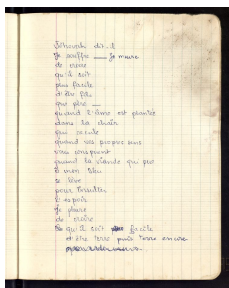 Jéhovah dit-il
Je souffre —— Je meurs
de croire
qu'il soit
plus facile
d'être fils
que père —
quand l'âme est plantée
dans la chair
qui recule
quand ses propres sens
vous conspuent
quand la viande qui pue
ô mon Dieu
se lève
pour insulter
l'espoir
Je pleure
de croire
qu'il soit facile
d'être terre puis terre encore